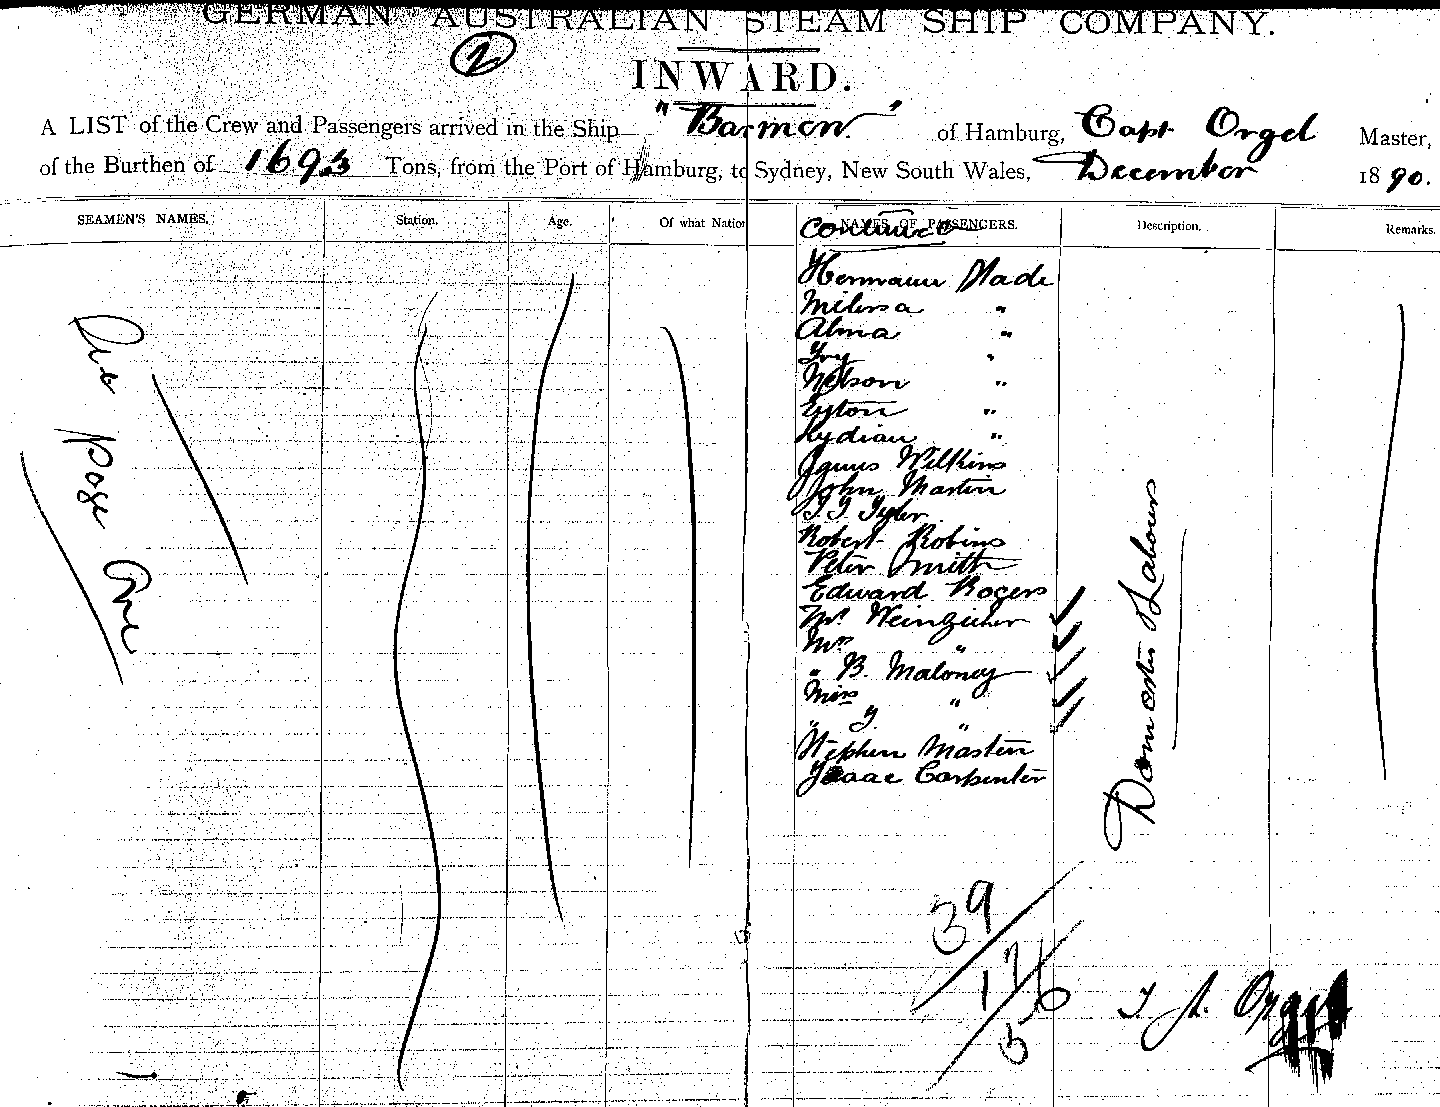 GERMAN AUSTRALIAN STEAM SHIP COMPANY.
2
INWARD.
A LIST of the Crew and Passengers arrived in the Ship "Barmen" of Hamburg, Capt Orgel Master,
of the Burthen of 1693 Tons, from the Port of Hamburg, to Sydney, New South Wales, December 1890.
SEAMEN'S NAMES. Station. Age. Of what Nation NAMES OF PASSENGERS. Description. Remarks.
continued
Hermann Wade
"
Alma "
Ivy "
Nelson "
"
Lydian "
James Wilkins
John Martin
Tyler
Robert Robins
Peter Smith
Edward Rogers
Mr.
Mrs "
" B. Maloney
Miss "
" "
Stephen Masten
Isaac Carpenter
See page One
Domestic Labours
39
17
56
Orgel